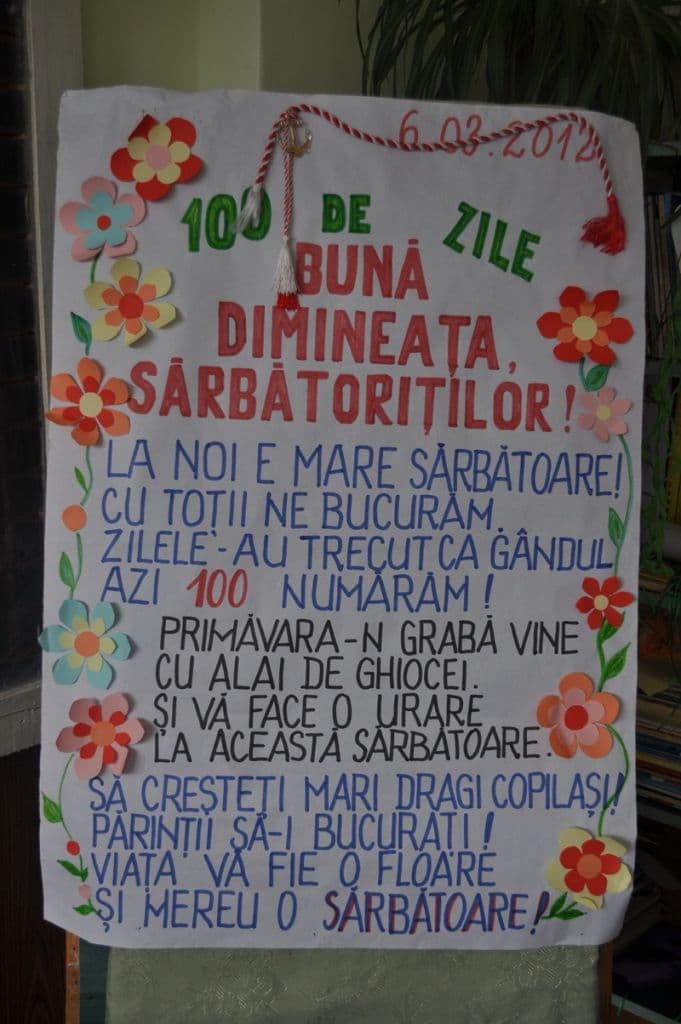 6.03.2012
100 DE ZILE
BUNĂ
DIMINEAȚA,
SĂRBĂTORIȚILOR!
LA NOI E MARE SĂRBĂTOARE!
CU TOȚII NE BUCURĂM.
ZILELE-AU TRECUT CA GÂNDUL
AZI 100 NUMĂRĂM!
PRIMĂVARA-N GRABĂ VINE
CU ALAI DE GHIOCEI.
ȘI VĂ FACE O URARE
LA ACEASTĂ SĂRBĂTOARE.
SĂ CREȘTEȚI MARI DRAGI COPILAȘI!
PĂRINȚII SĂ-I BUCURAȚI!
VIAȚA VĂ FIE O FLOARE
ȘI MEREU O SĂRBĂTOARE!